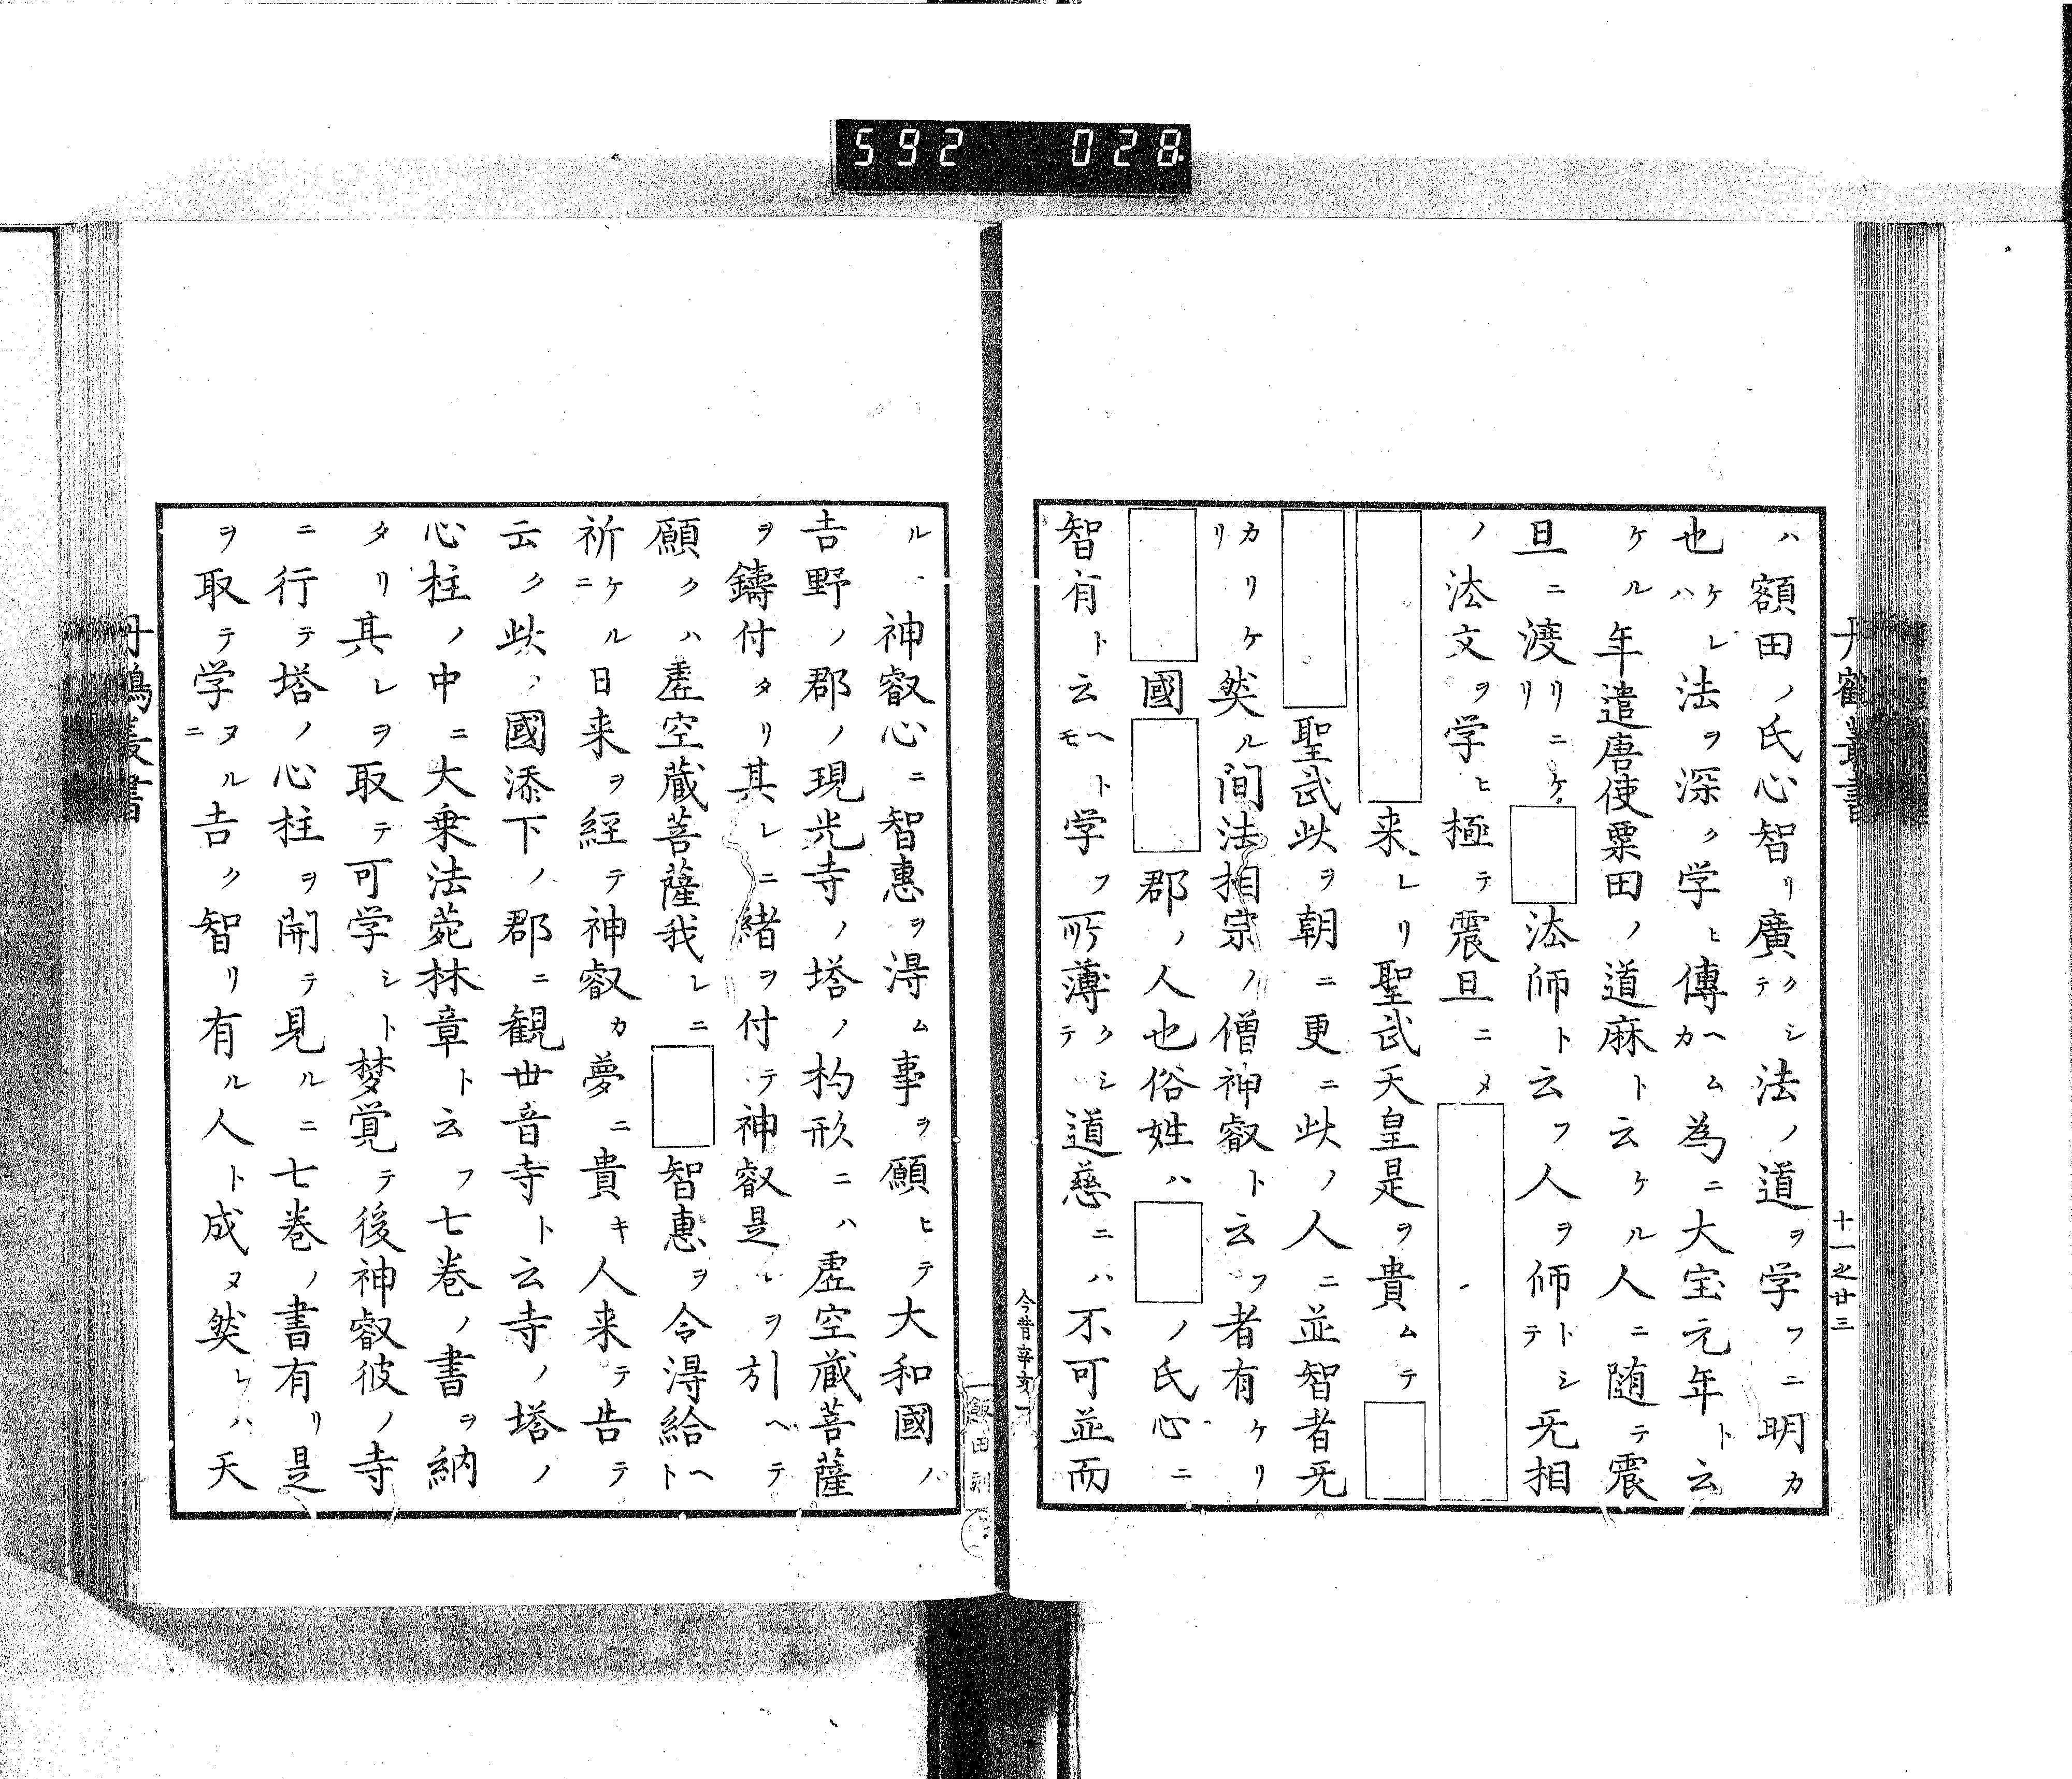 592 028
丹鶴叢書
十一之廿三
ハ額田ノ氏心智リ廣クシテ法ノ道ヲ学フニ明カ
也ケレハ法ヲ深ク学ヒ傳ヘムカ為ニ大宝元年ト云
ケル年遣唐使粟田ノ道麻ト云ケル人ニ随テ震
旦ニ渡リニケリ□法師ト云フ人ヲ師トシテ无相
ノ法文ヲ学ヒ極テ震旦ニメ□
□来レリ聖武天皇是ヲ貴ムテ□
□聖武此ヲ朝ニ更ニ此ノ人ニ並智者无
カリケリ然ル間法相宗ノ僧神叡ト云フ者有ケリ
□國□郡ノ人也俗姓ハ□ノ氏心ニ
智有ト云ヘトモ学フ所薄クシテ道慈ニハ不可並而
今昔
飯田刻
ル神叡心ニ智惠ヲ淂ム事ヲ願ヒテ大和國ノ
吉野ノ郡ノ現光寺ノ塔ノ杓形ニハ虚空蔵菩薩
ヲ鑄付タリ其レニ緒ヲ付テ神叡是レヲ引ヘテ
願クハ虚空蔵菩薩我レニ□智惠ヲ令淂給ヘト
祈ケルニ日来ヲ経テ神叡カ夢ニ貴キ人来テ告テ
云ク此ノ國添下ノ郡ニ観世音寺ト云寺ノ塔ノ
心柱ノ中ニ大乗法菀林章ト云フ七巻ノ書ヲ納
タリ其レヲ取テ可学シト梦覚テ後神叡彼ノ寺
ニ行テ塔ノ心柱ヲ開テ見ルニ七巻ノ書有リ是
ヲ取テ学ヌルニ吉ク智リ有ル人ト成ヌ然レハ天
丹鶴叢書